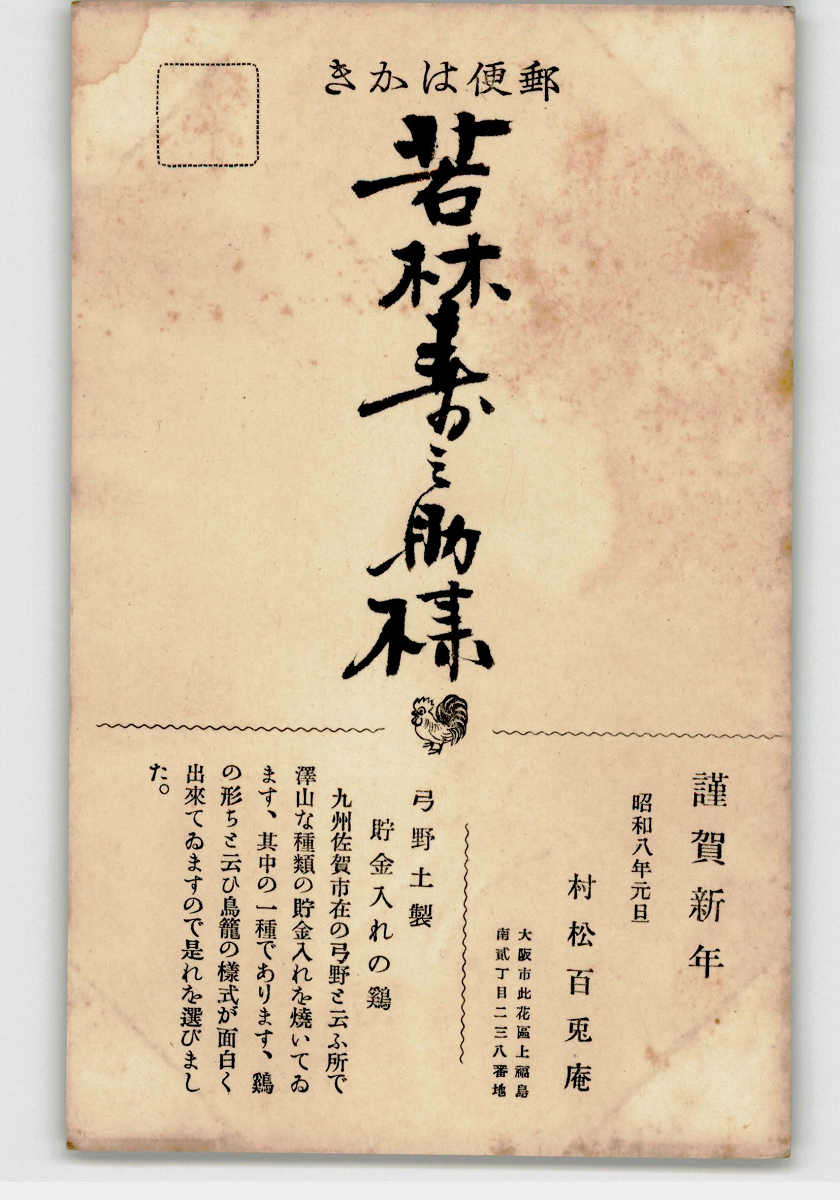 郵便はかき
若林寿之助様
謹賀新年
昭和八年元旦
村松百兎庵
大阪市此花區上福島
南貳丁目二三八番地
弓野土製
貯金入れの鷄
九州佐賀市在の弓野と云ふ所で
澤山な種類の貯金入れを燒いてゐ
ます、其中の一種であります、鷄
の形ちと云ひ鳥籠の様式が面白く
出來てゐますので是れを選びまし
た。